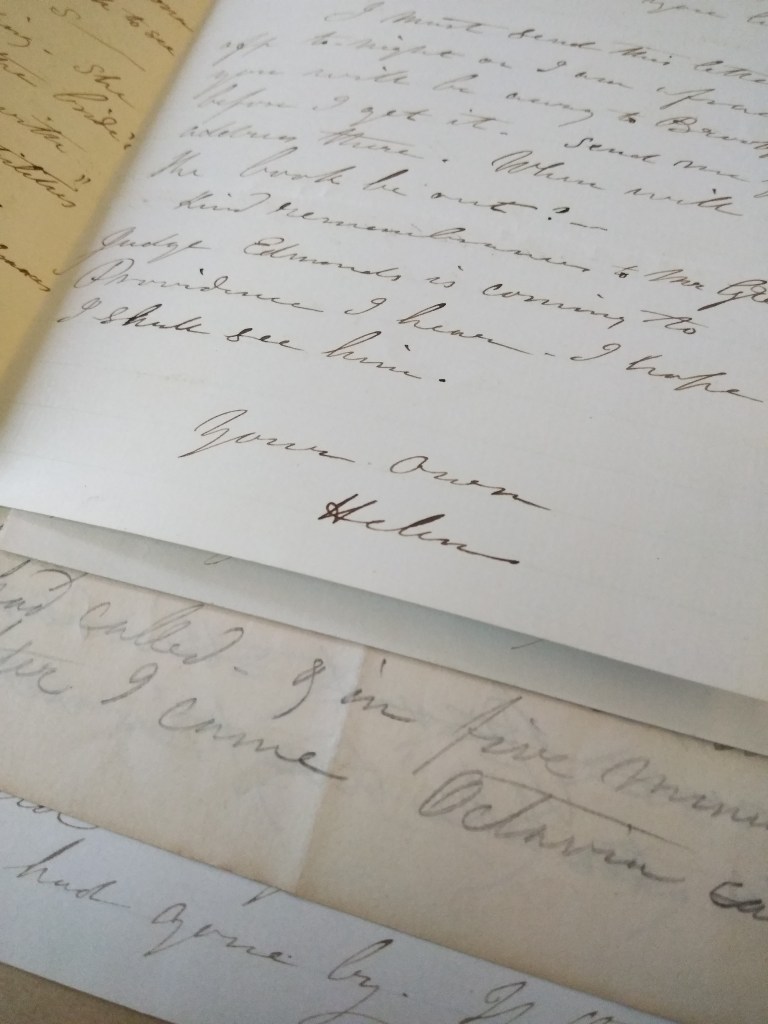 to see
5
She
with
I must send this letter
off to-night or I am afraid
you will be away to
before I get it. Send me
address there. When will
the book be out? —
Kind remembrances to Mr
Judge Edmonds is coming to
Providence I hear - I hope
I shall see him.
Your Own
Helen
had called - & in five minu
I came Octavia ca
had gone by.